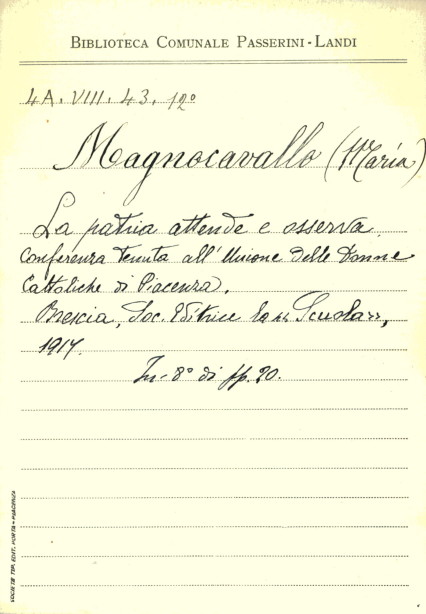 BIBLIOTECA COMUNALE PASSERINI-LANDI
4A. VIII. 43. 12º
Magnocavallo (Maria)
La patria attende e osserva.
Conferenza tenuta all'Unione delle Donne
Cattoliche di Piacenza.
Brescia, Soc. Editrice la "Scuola",
1917.
In-8º di pp. 20.
SOCIETÀ TIP. EDIT. PORTA - PIACENZA